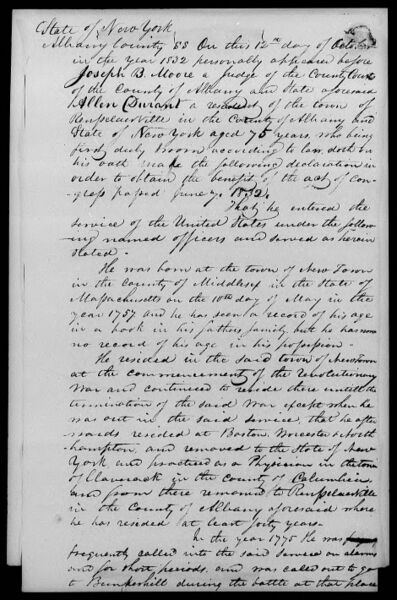 State of New York
Albany County SS On this 12th day of Octo
in the year 1832 personally appeared before
Joseph B. Moore a Judge of the County Court
of the County of Albany and State aforesaid
Allen Durant a resident of the town of
Rensselaerville in the County of Albany and
State of New York aged 75 years, who being
first duly sworn according to law, doth on
his oath make the following declaration in
order to obtain the benefit of the act of Con-
gress passed June 7. 1832.
That he entered the
service of the United States under the follow-
ing named officers and served as herein
stated.
He was born at the town of New Town
in the County of Middlesex in the State of
Massachusetts on the 10th day of May in the
year 1757 and he has seen a record of his age
in a book in his fathers family but he has now
no record of his age in his possession.
He resided in the said town of Newtown
at the commencement of the revolutionary
War and continued to reside there untill the
termination of the said War except when he
was out in the said service, that he after
wards resided at Boston, Worcester & North
hampton, and removed to the State of New
York and practiced as a Physician in the town
of Claverack in the County of Columbia,
and from there removed to Rensselaerville
in the County of Albany aforesaid where
he has resided at least forty years.
In the year 1775 He was
frequently called into the said service on alarms
and for short periods, and was called out to go
to Bunkerhill during the battle at that place